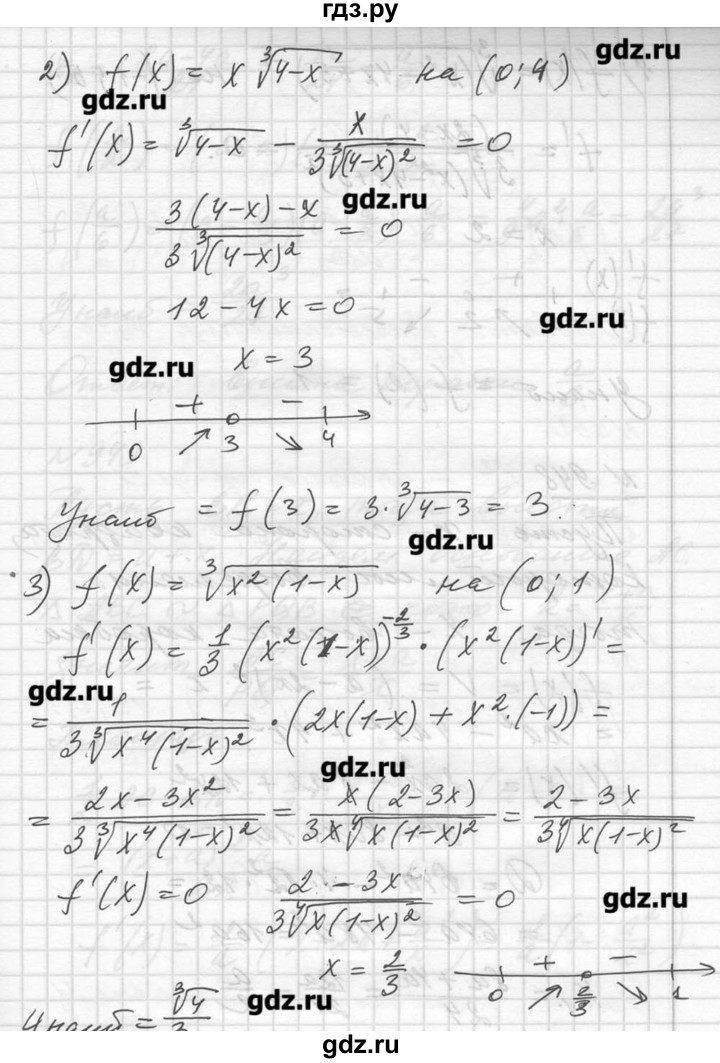 гдз.ру
gdz.ru
2) f(x) = x ∛(4-x) на (0; 4)
gdz.ru
f'(x) = ∛(4-x) - x / (3∛(4-x)²) = 0
gdz.ru
(3(4-x) - x) / (3∛(4-x)²) = 0
12 - 4x = 0
gdz.ru
gdz.ru
x = 3
+ -
0 ↗ 3 ↘ 4
Унаиб = f(3) = 3·∛(4-3) = 3.
gdz.ru
3) f(x) = ∛(x²(1-x)) на (0; 1)
f'(x) = 1/3 (x²(1-x))^(-2/3) · (x²(1-x))' =
gdz.ru
= 1 / (3∛(x⁴(1-x)²)) · (2x(1-x) + x²·(-1)) =
gdz.ru
= (2x - 3x²) / (3∛(x⁴(1-x)²)) = x(2-3x) / (3x∜(x(1-x)²)) = (2-3x) / (3∜(x(1-x)²))
f'(x) = 0 (2-3x) / (3∜(x(1-x)²)) = 0
gdz.ru
x = 2/3
+ -
0 ↗ 2/3 ↘ 1
Унаиб = ∛4 / 3
gdz.ru
gdz.ru